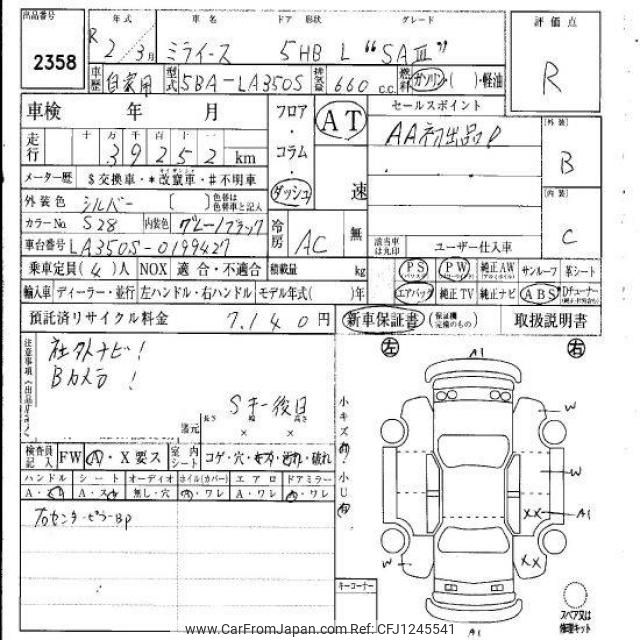 出品番号
2358
年式 車名 ドア 形状 グレード
R 2/3月 ミライース 5HB L "SAⅢ"
評価点
R
車歴 自家用 型式 5BA-LA350S 排気量 660 c.c. 燃料 ガソリン・( )・軽油
車検 年 月
フロア・コラム・ダッシュ
AT
速
セールスポイント
AA初出品!
走行
十 万 千 百 十 一
3 9 2 5 2 km
メーター歴 $交換車・*改竄車・#不明車
外装色 シルバー [ ] 色替は色替車と記入
カラーNo. S28 内装色 グレー/ブラック
車台番号 LA350S-0199427
冷房 AC 無
該当車は丸印 ユーザー仕入車
[外装]
B
[内装]
C
乗車定員(4)人 NOX 適合・不適合 積載量 kg
PS PW 純正AW サンルーフ 革シート
輸入車 ディーラー・並行 左ハンドル・右ハンドル モデル年式( )年
エアバッグ 純正TV 純正ナビ ABS Dチューナー
預託済リサイクル料金 7,140円
新車保証書 (保証書完備のもの) 取扱説明書
注意事項
社外ナビ!
Bカメラ!
Sキー後日
諸元 長さ 幅 高さ
× ×
左 右
A1
W
W
XX A1
W
XX
A1
小キズ 有! 小U 有
検査員記入 FW A・X要ス 室内シート コゲ・穴・キズ・汚れ・破れ
ハンドル シート オーディオ ホイル(カバー) エアロ ドアミラー
A・ A・ス 無し・穴 ・ワレ A・ワレ ・ワレ
右センターピラーBP
キーコーナー
スペア又は修理キット
www.CarFromJapan.com Ref: CFJ1245541